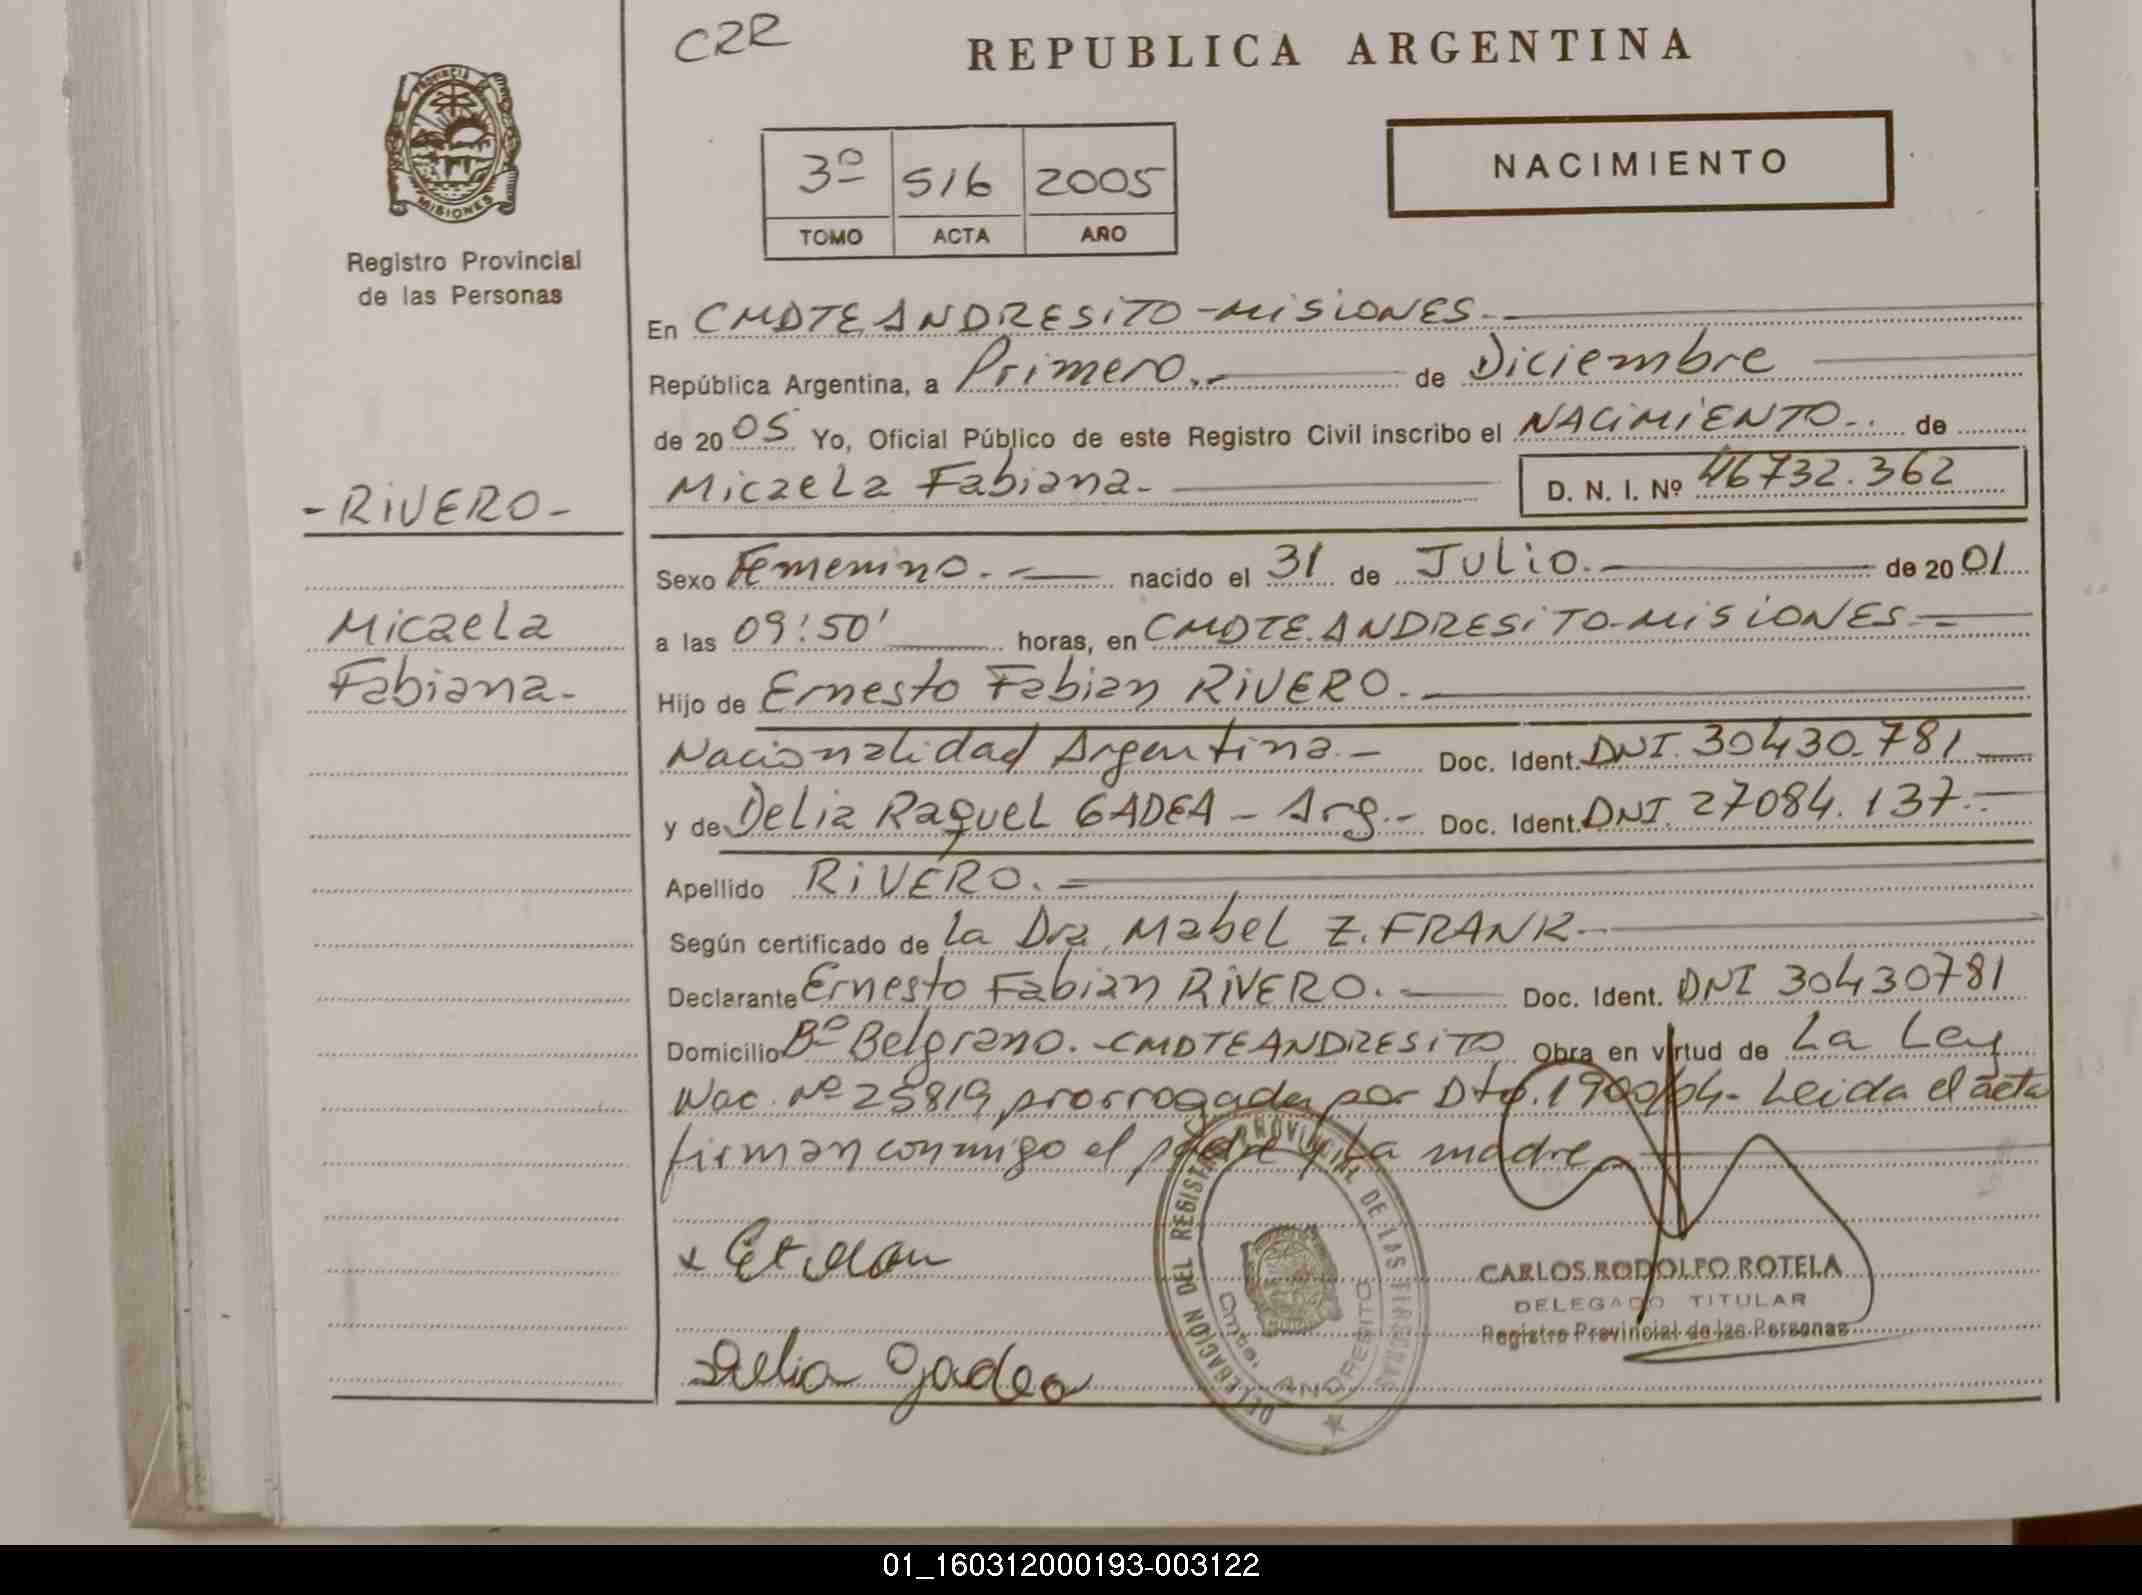 C22
REPUBLICA ARGENTINA
PROVINCIA
MISIONES
Registro Provincial
de las Personas
3º 516 2005
TOMO ACTA AÑO
NACIMIENTO
En CMDTE ANDRESiTO - MiSiONES.
República Argentina, a Primero. de Diciembre
de 2005 Yo, Oficial Público de este Registro Civil inscribo el NACiMiENTO. de
Micaela Fabiana. D. N. I. Nº 46732.362
- RiVERO -
Micaela
Fabiana.
Sexo Femenino. nacido el 31 de Julio. de 2001
a las 09:50' horas, en CMDTE. ANDRESiTO - MiSiONES
Hijo de Ernesto Fabian RiVERO.
Nacionalidad Argentina. Doc. Ident. DNI. 30430.781
y de Delia Raquel GADEA - Arg. - Doc. Ident. DNI. 27084.137
Apellido RiVERO.
Según certificado de La Dra. Mabel Z. FRANK
Declarante Ernesto Fabian RiVERO. Doc. Ident. DNI 30430781
Domicilio Bº Belgrano. - CMDTE ANDRESiTO Obra en virtud de La Ley
Nac. Nº 25819 prorrogada por Dto. 1900/04 - Leida el acta
firman conmigo el padre y La madre
DELEGACIÓN DEL REGISTRO PROVINCIAL DE LAS PERSONAS
Cmte. ANDRESITO
CARLOS RODOLFO ROTELA
DELEGADO TITULAR
Registro Provincial de las Personas
Delia Gadea
01_160312000193-003122